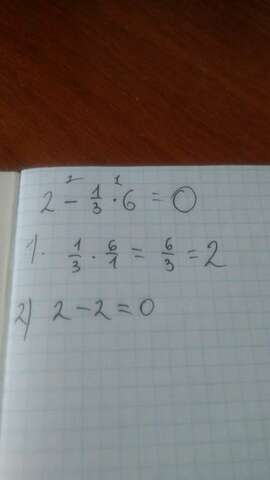 2 1
2 - 1/3 · 6 = 0
1). 1/3 · 6/1 = 6/3 = 2
2) 2 - 2 = 0